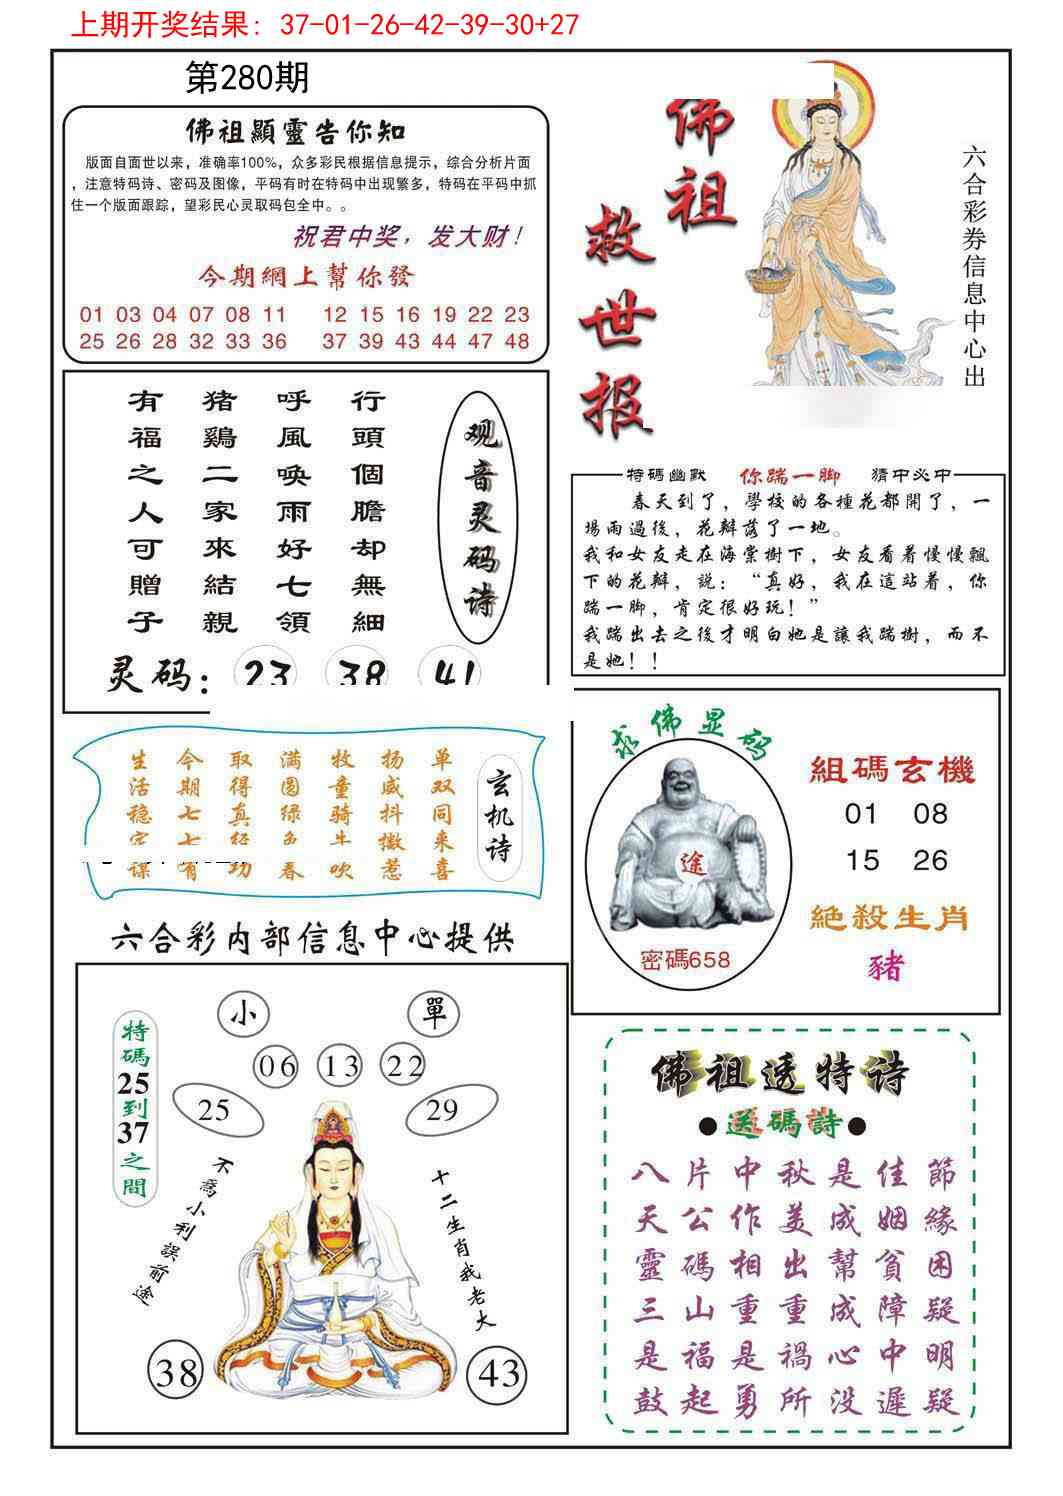 上期开奖结果：37-01-26-42-39-30+27
第280期
佛祖顯靈告你知
版面自面世以来，准确率100%，众多彩民根据信息提示，综合分析片面
，注意特码诗、密码及图像，平码有时在特码中出现繁多，特码在平码中抓
住一个版面跟踪，望彩民心灵取码包全中。。
祝君中奖，发大财！
今期網上幫你發
01 03 04 07 08 11 12 15 16 19 22 23
25 26 28 32 33 36 37 39 43 44 47 48
佛祖
救世报
六合彩券信息中心出
观音灵码诗
行頭個膽却無細
呼風喚雨好七領
猪鷄二家來結親
有福之人可贈子
灵码：23 38 41
特碼幽默 你踹一脚 猜中必中
春天到了，學校的各種花都開了，一
場雨過後，花瓣落了一地。
我和女友走在海棠樹下，女友看着慢慢飄
下的花瓣，説：“真好，我在這站着，你
踹一脚，肯定很好玩！”
我踹出去之後才明白她是讓我踹樹，而不
是她！！
玄机诗
单双同来喜
扬威抖擞惹
牧童骑牛吹
满园绿色春
取得真经功
今期七七有
生活稳定谋
求佛显码
途
密碼658
組碼玄機
01 08
15 26
絕殺生肖
豬
六合彩内部信息中心提供
小 單
06 13 22
25 29
特碼25到37之間
不爲小利誤前途
十二生肖我老大
38 43
佛祖透特诗
●送碼詩●
八片中秋是佳節
天公作美成姻緣
靈碼相出幫貧困
三山重重成障疑
是福是禍心中明
鼓起勇所没遲疑